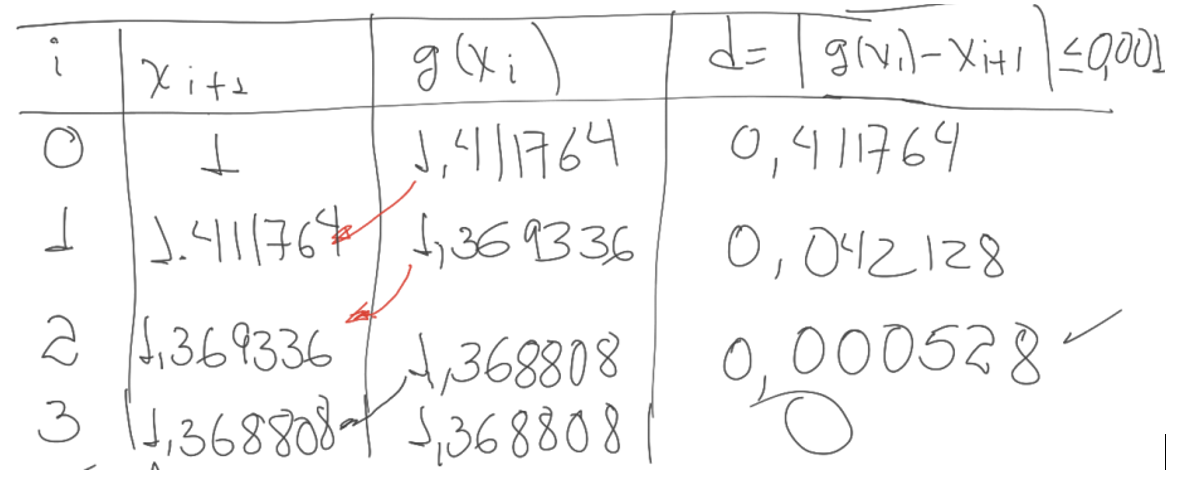 i x i+1 g(xi) d= |g(xi)-xi+1| ≤0,001
0 1 1,411764 0,411764
1 1.411764 1,369336 0,042128
2 1,369336 1,368808 0,000528 ✓
3 1,368808 1,368808 0